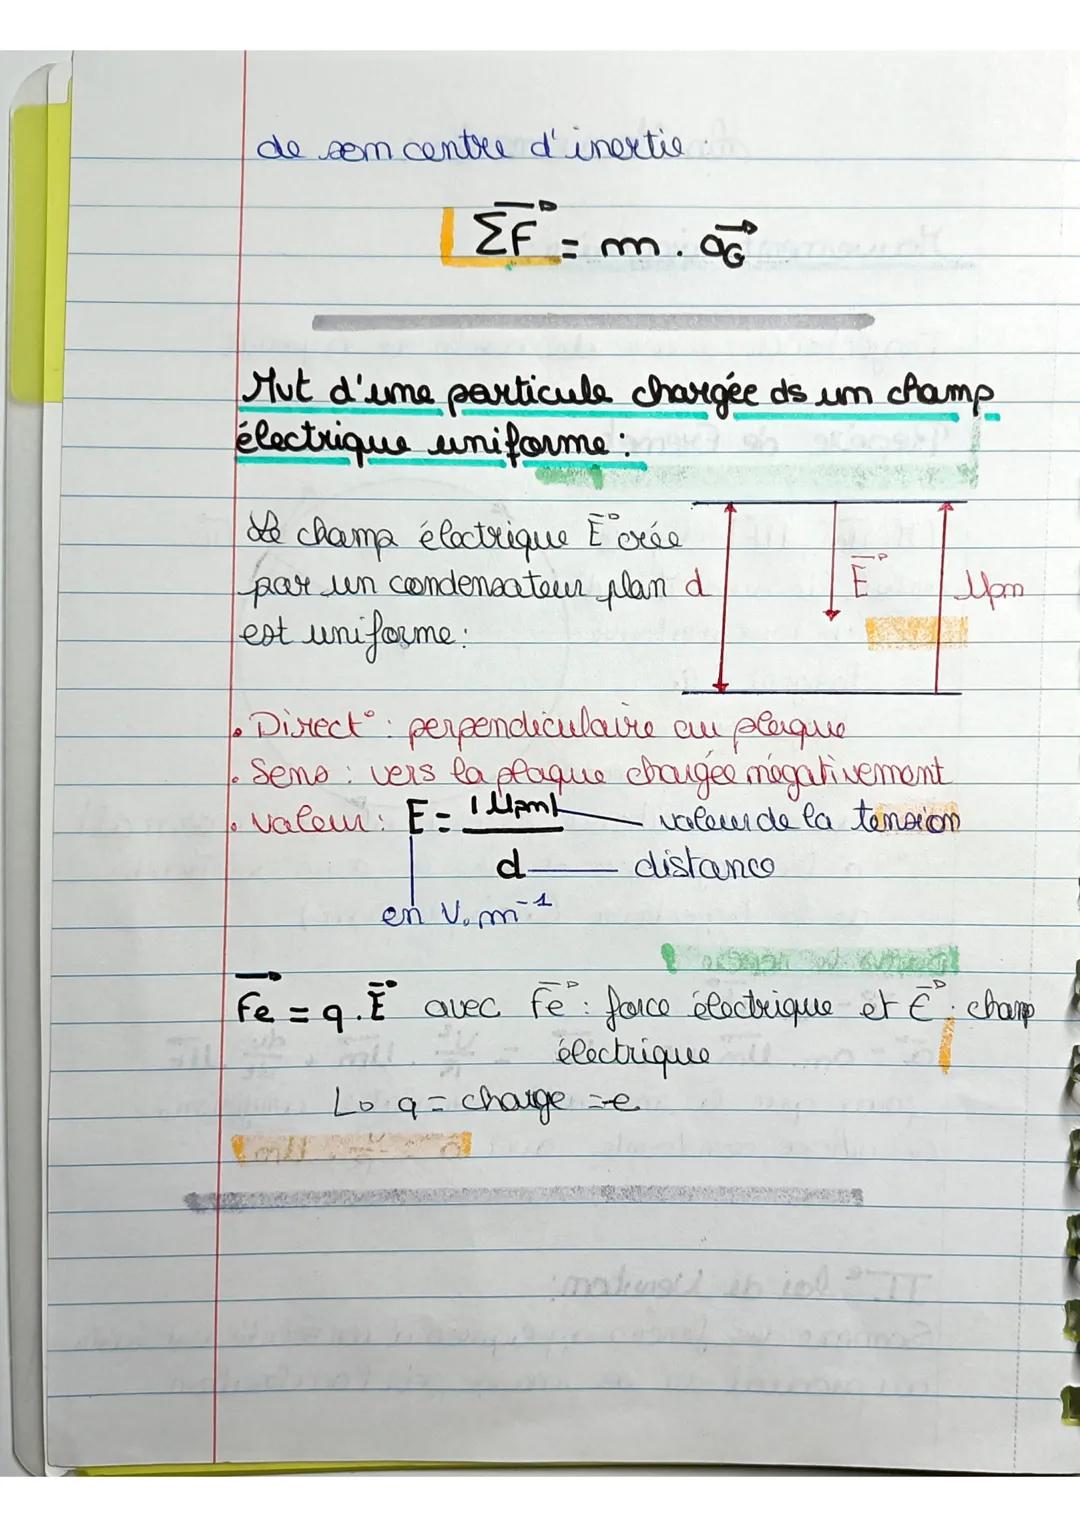 de son centre d'inertie.
ΣF = m . aG
Mvt d'une particule chargée ds un champ
électrique uniforme :
Le champ électrique E crée
par un condensateur plan
est uniforme :
d
E
Upm
• Direct° : perpendiculaire au plaque
• Sens : vers la plaque chargée négativement
• valeur : E = |Upm| valeur de la tension
d distance
en V.m⁻¹
Fe = q.E avec Fe : force électrique et E : champ
électrique
↳ q = charge = e